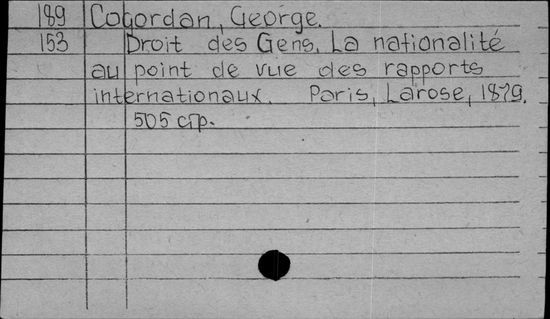 189 Cogordan, George.
153 Droit des Gens. La nationalité
au point de vue des rapports
internationaux. Paris, Larose, 1879.
505 c7p.